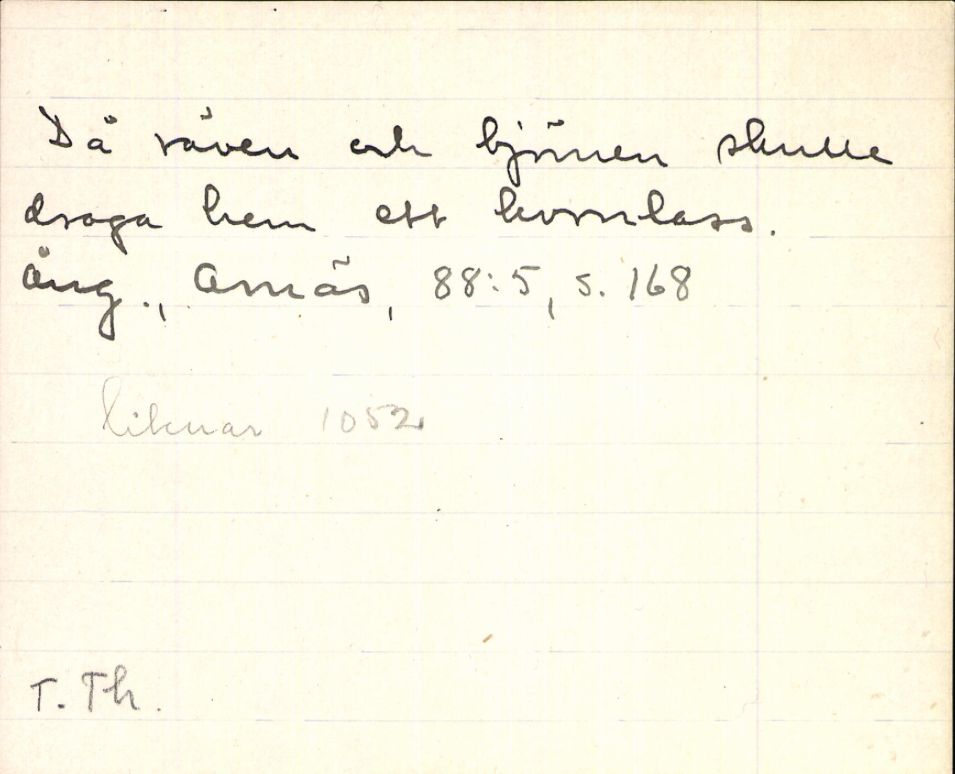 Då räven och björnen skulle
draga hem ett kornlass.
Ång., Arnäs, 88:5, s. 168
liknar 1052
T. Th.